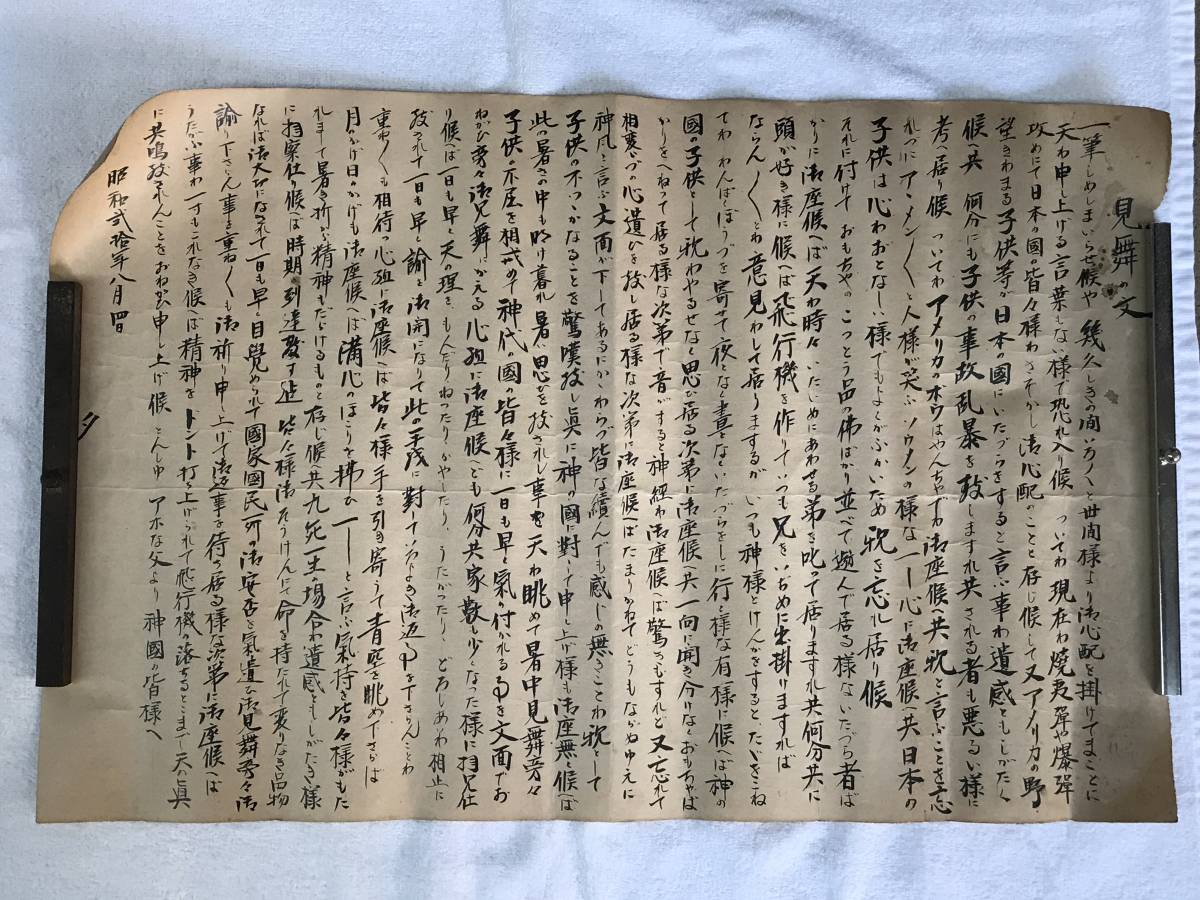 見舞の文
一筆しめしまいらせ候や 幾久しきの間いろ〳〵と世間様より御心配を掛けてまことに
天わ申し上げる言葉しない様で恐れ入り候 ついてわ現在わ焼夷弾や爆弾
攻めにて日本の国の皆々様わさぞかし御心配のことと存じ候して又アメリカの野
望きわまる子供等が日本の國にいたづらをすると言ふ事わ遺感ともしがたく
候へ共 何分にも子供の事故乱暴を致しますれ共される者も悪るい様に
考へ居り候 ついてわアメリカのボウはやんちゃでわ御座候へ共 親と言ふことを忘
れつにアーメン〳〵と人様が笑ふソウメンの様な一心に御座候へ共日本の
子供は心わおとなしい様でもよくがふかいため親を忘れ居り候
それに付けておもちゃのこっとう品の佛ばかり並べて遊んで居る様ないたづら者ば
かりに御座候へば天わ時々いたじめにあわせる弟を叱って居りますれ共何分共に
頭が好き様に候へば飛行機を作りていつも兄をいぢめに出掛けますれば
ならん〳〵とわ意見わして居りまするがいつも神様とけんかをするとたゞをこね
てわわんぱくぼうづを寄せて夜となく晝となくいたづらをしに行く様な有様に候へば神の
國の子供として親わやるせなく思ひ居る次第に御座候へ共一向に聞き分けなくおもちゃば
かりをひねって居る様な次第で音がすると神経わ御座候へば驚きもすれど又忘れて
相変らづの心遣ひを致し居る様な次第に御座候へばたまりかねてどうもなかぬゆえに
神風と言ふ文面が下してあるにかゝわらづ皆な續んでも感じの無きことわ親として
子供の不つゝかなることを驚嘆致し眞に神の國に對して申し上げ様も御座無く候へば
此の暑さの中も明け暮れ暑い思ひを致されし事を天わ眺めて暑中見舞旁々
子供の不屈を相戒め神代の國の皆々様に一日も早く氣の付かれる事を文面でお
ねがひ旁々御見舞にかえる心組に御座候へども何分共家数も少くなった様に拝見仕
り候へば一日も早く天の理を もんだりねったりひやしたり うたがったりくどろしあわ相止に
致されて一日も早く諭しを御開になりて此の手戊に對していろよき御返事を下さらんことわ
重ね〳〵も相待つ心組に御座候へば皆々様手を引き寄うて青空を眺めて下さらば
月のかげ日のかげも御座候へば満心のほこりを拂ひ一と言ふ氣持を皆々様がもた
れまして暑き折がら精神もだらけるものと存じ候へ共九死一生の場合わ遺感としがたき様
に拝察仕り候へば時期の到達致す迄 皆々様御そうけんにて命を持たれて変りなき品物
なれば御大切になされて一日も早く目覺められて國家國民可の御安否と氣遣ひ御見舞旁々御
諭り下さらん事を重ね〳〵も御祈り申し上げて御返事を待つ居る様な次第に御座候へば
うたがふ事わ一寸もこれなき候へば精神をドント打ち上げられて飛行機の落ちるとこまで天の眞
に共鳴致されんことをおねがひ申し上げ候 とんしゅ アホな父より 神國の皆様へ
昭和弐拾年八月四日
夕